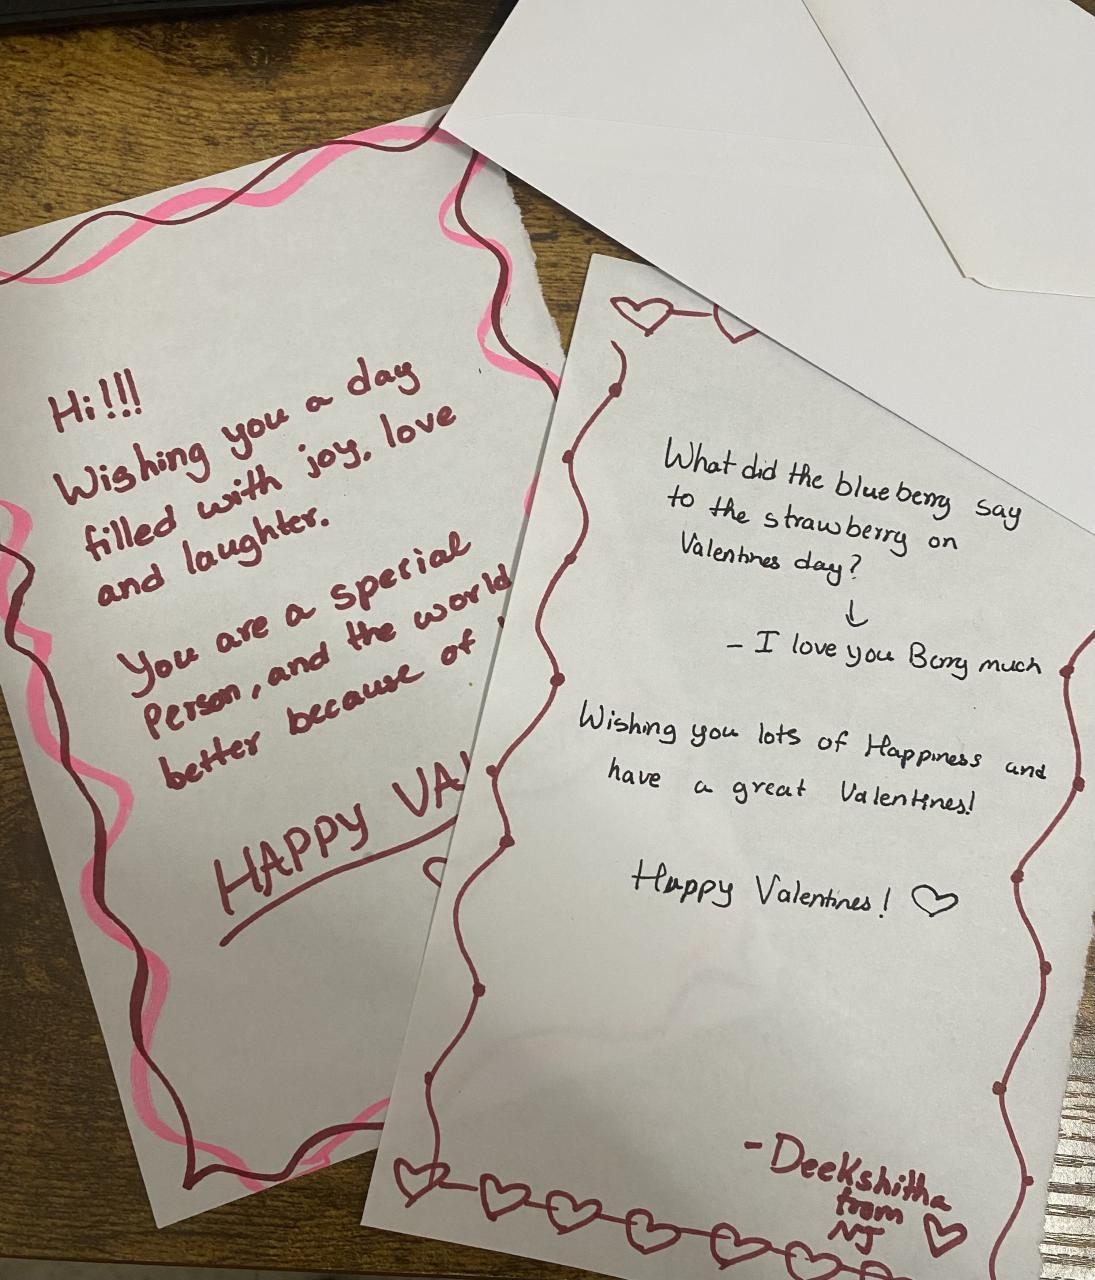 Hi!!!
Wishing you a day
filled with joy, love
and laughter.
You are a special
Person, and the world
better because of
HAPPY VA
What did the blueberry say
to the strawberry on
Valentines day?
- I love you Berry much
Wishing you lots of Happiness and
have a great Valentines!
Happy Valentines!
- Deekshitha
from
NJ